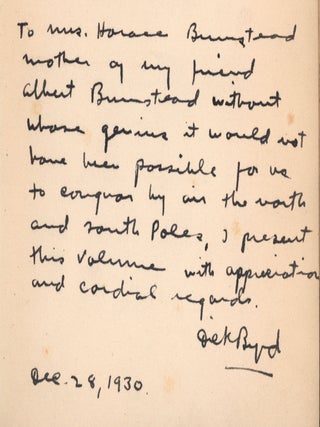 To Mrs. Horace Bumstead
mother of my friend
Albert Bumstead without
whose genius it would not
have been possible for us
to conquer by air the north
and south Poles, I present
this volume with appreciation
and cordial regards.
REByrd
Dec. 28, 1930.